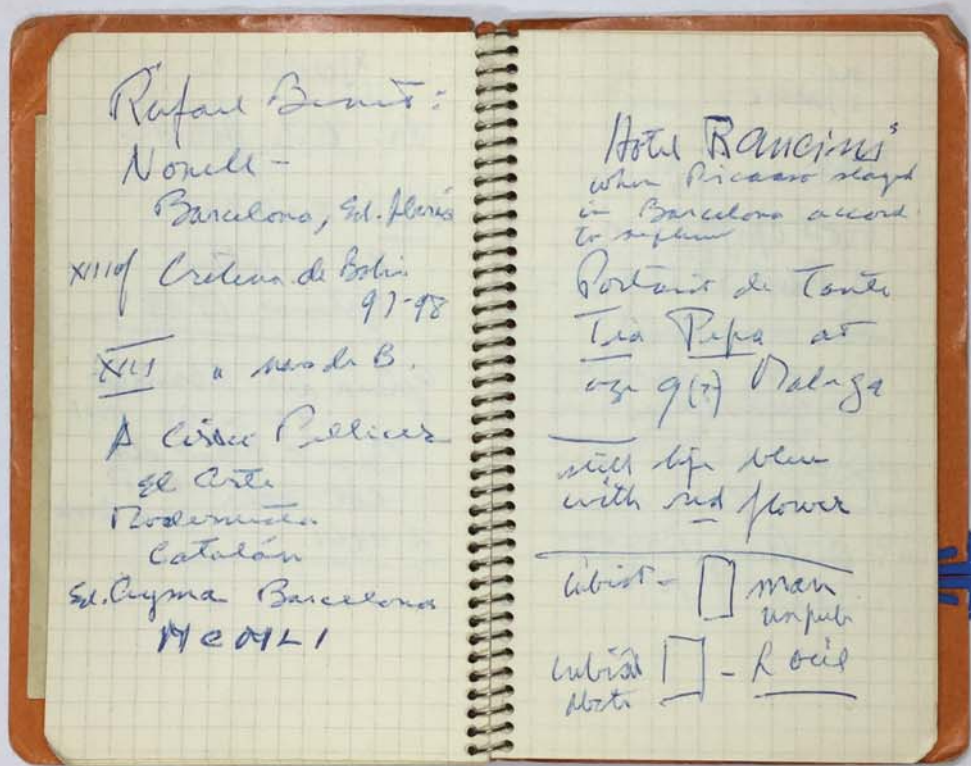 Rafael Benet:
Nonell -
Barcelona, Ed. Iberia
XIII of Cretina de Bohi
97-98
XIII " nens de B.
A Cirici Pellicer
El Arte
Modernista
Catalán
Ed. Aymá Barcelona
MCMLI
Hotel Rancini's
when Picasso stayed
in Barcelona accord
to nephew
Portrait de Tante
Tia Pepa at
age 9(?) Malaga
still life blue
with red flower
Cubist - man
unpub
Cubist - L'oeil